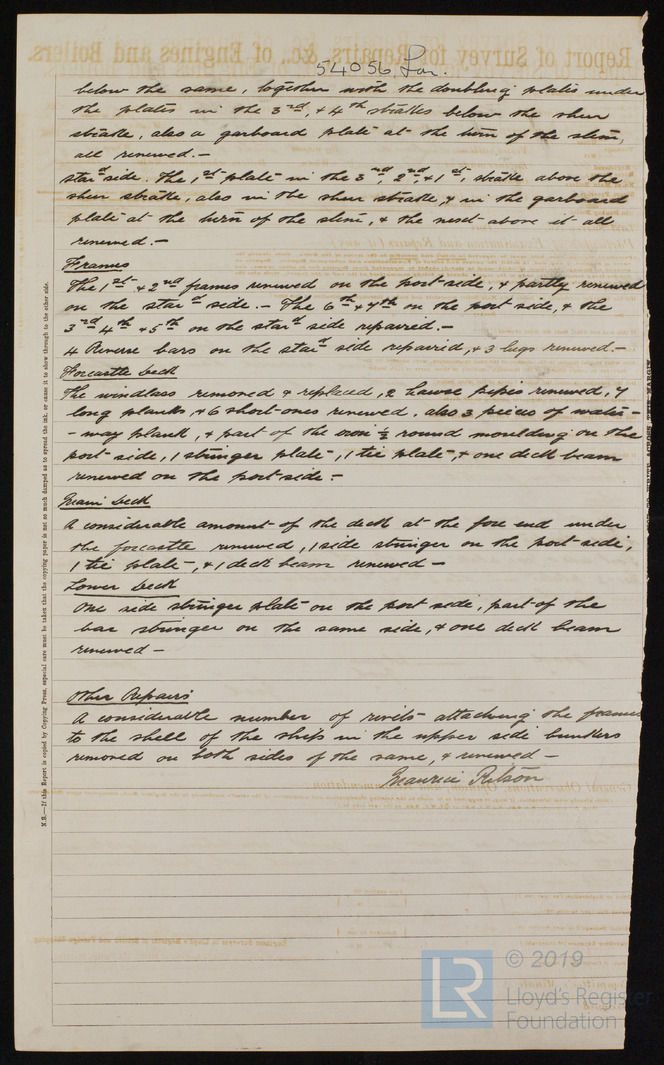 Report of Survey for Repairs, &c., of Engines and Boilers.
54056 Lon.
below the same, together with the doubling plates under
the plates in the 3rd, & 4th strakes below the sheer
strake, also a garboard plate at the turn of the stem,
all renewed.—
Stard side. The 1st plate in the 3rd, 2nd, & 1st, strake above the
sheer strake, also in the sheer strake, & in the garboard
plate at the turn of the stem, & the next above it all
renewed.—
Frames
The 1st & 2nd frames renewed on the port side, & partly renewed
on the stard side.— The 6th & 7th on the port side, & the
3rd 4th & 5th on the stard side repaired.—
4 Reverse bars on the stard side repaired, & 3 lugs renewed.—
Forecastle Deck
The windlass removed & replaced, 2 hawse pipes renewed, 7
long planks, & 6 short ones renewed, also 3 pieces of water-
-way plank, & part of the iron ½ round moulding on the
port side, 1 stringer plate, 1 tie plate, & one deck beam
renewed on the port side:—
Main Deck
A considerable amount of the deck at the fore end under
the forecastle renewed, 1 side stringer on the port side,
1 tie plate, & 1 deck beam renewed —
Lower Deck
One side stringer plate on the port side, part of the
bar stringer on the same side, & one deck beam
renewed —
Other Repairs
A considerable number of rivets attaching the frames
to the shell of the ship in the upper side bunkers
removed on both sides of the same, & renewed —
Maurice Ritson
N.B.—If this Report is copied by Copying Press, especial care must be taken that the copying paper is not so much damped as to spread the ink, or cause it to show through to the other side.
LR
© 2019
Lloyd's Register
Foundation